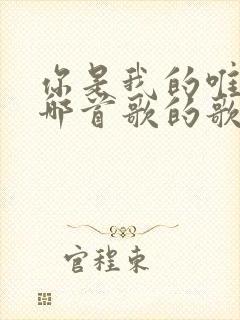 你是我的唯
那首歌的歌
官程東